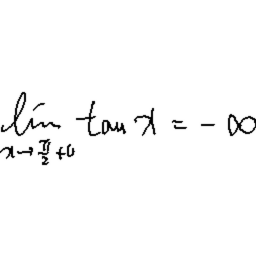 lim_{x→\frac{π}{2}+0} tan x = -∞